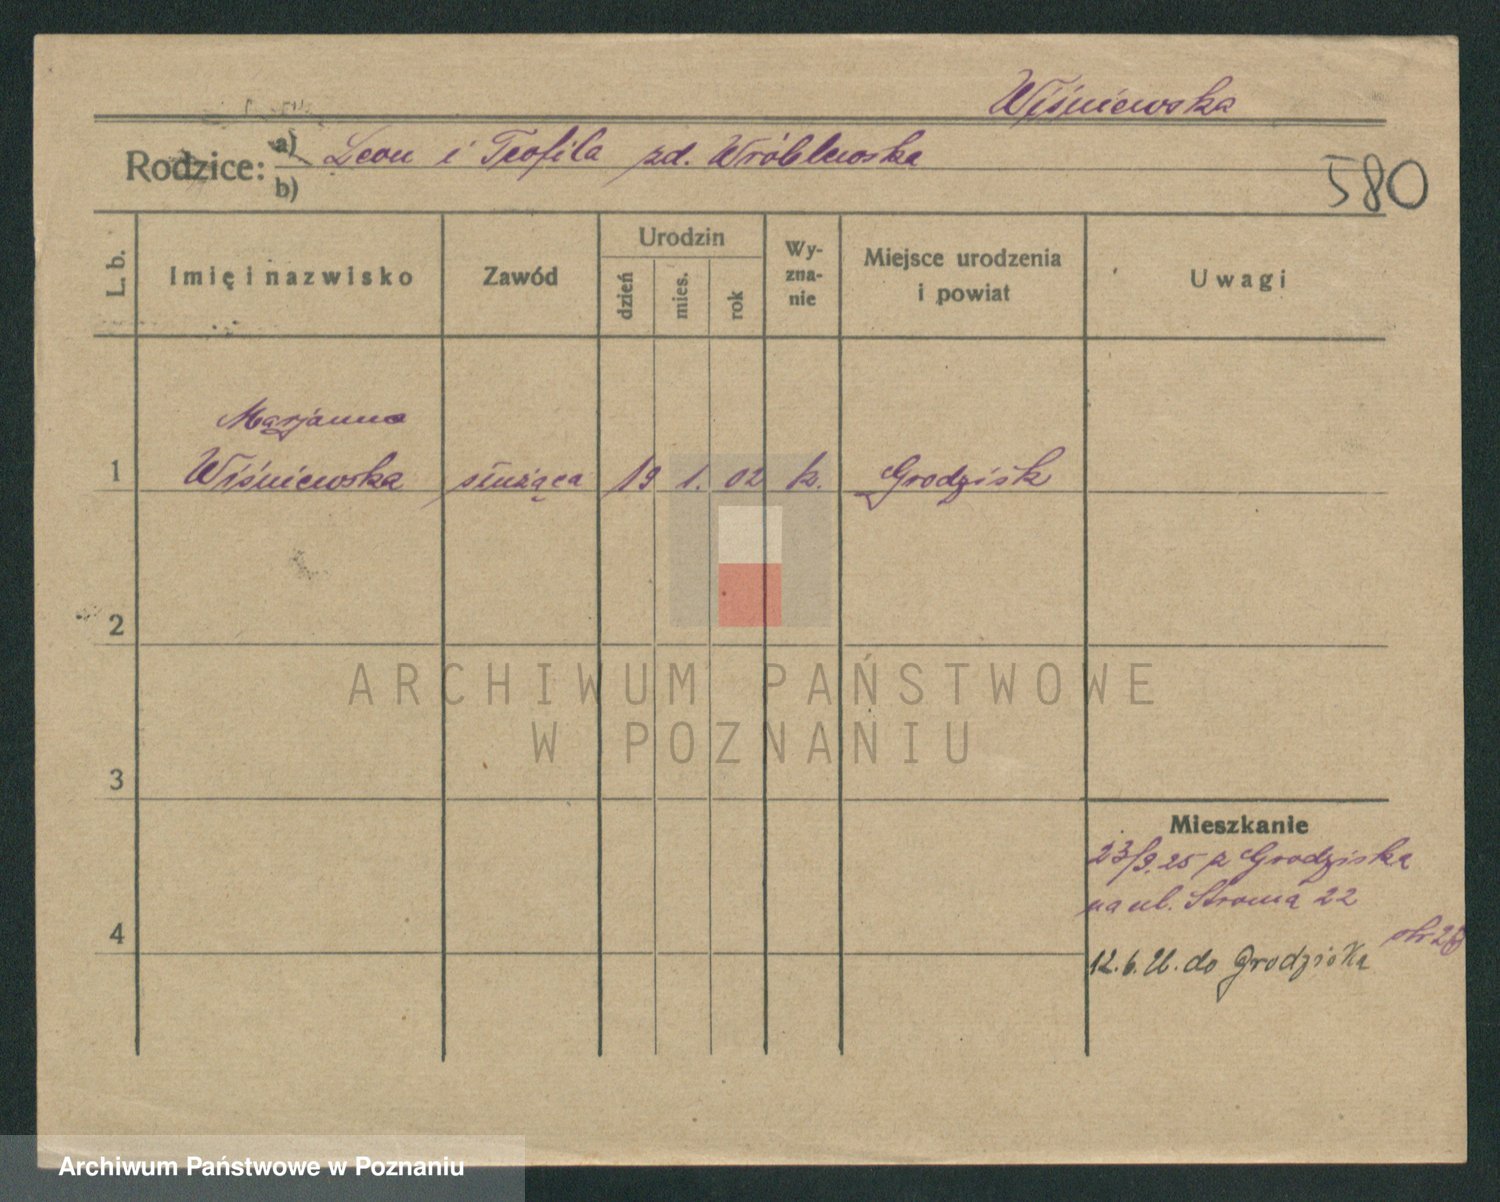 Wiśniewska
Rodzice: a) Leon i Teofila zd. Wróblewska
b)
580
L. b.
Imię i nazwisko
Zawód
Urodzin
dzień
mies.
rok
Wy-
zna-
nie
Miejsce urodzenia
i powiat
Uwagi
Marjanna
1 Wiśniewska służąca 19 1. 02 k. Grodzisk
2
ARCHIWUM PAŃSTWOWE
W POZNANIU
3
Mieszkanie
23/9.25 z Grodziska
na ul. Stroma 22
4
12.6.26. do Grodziska
Archiwum Państwowe w Poznaniu